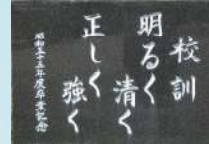 校訓
明るく
清く
正しく
強く
昭和五十五年度卒業記念